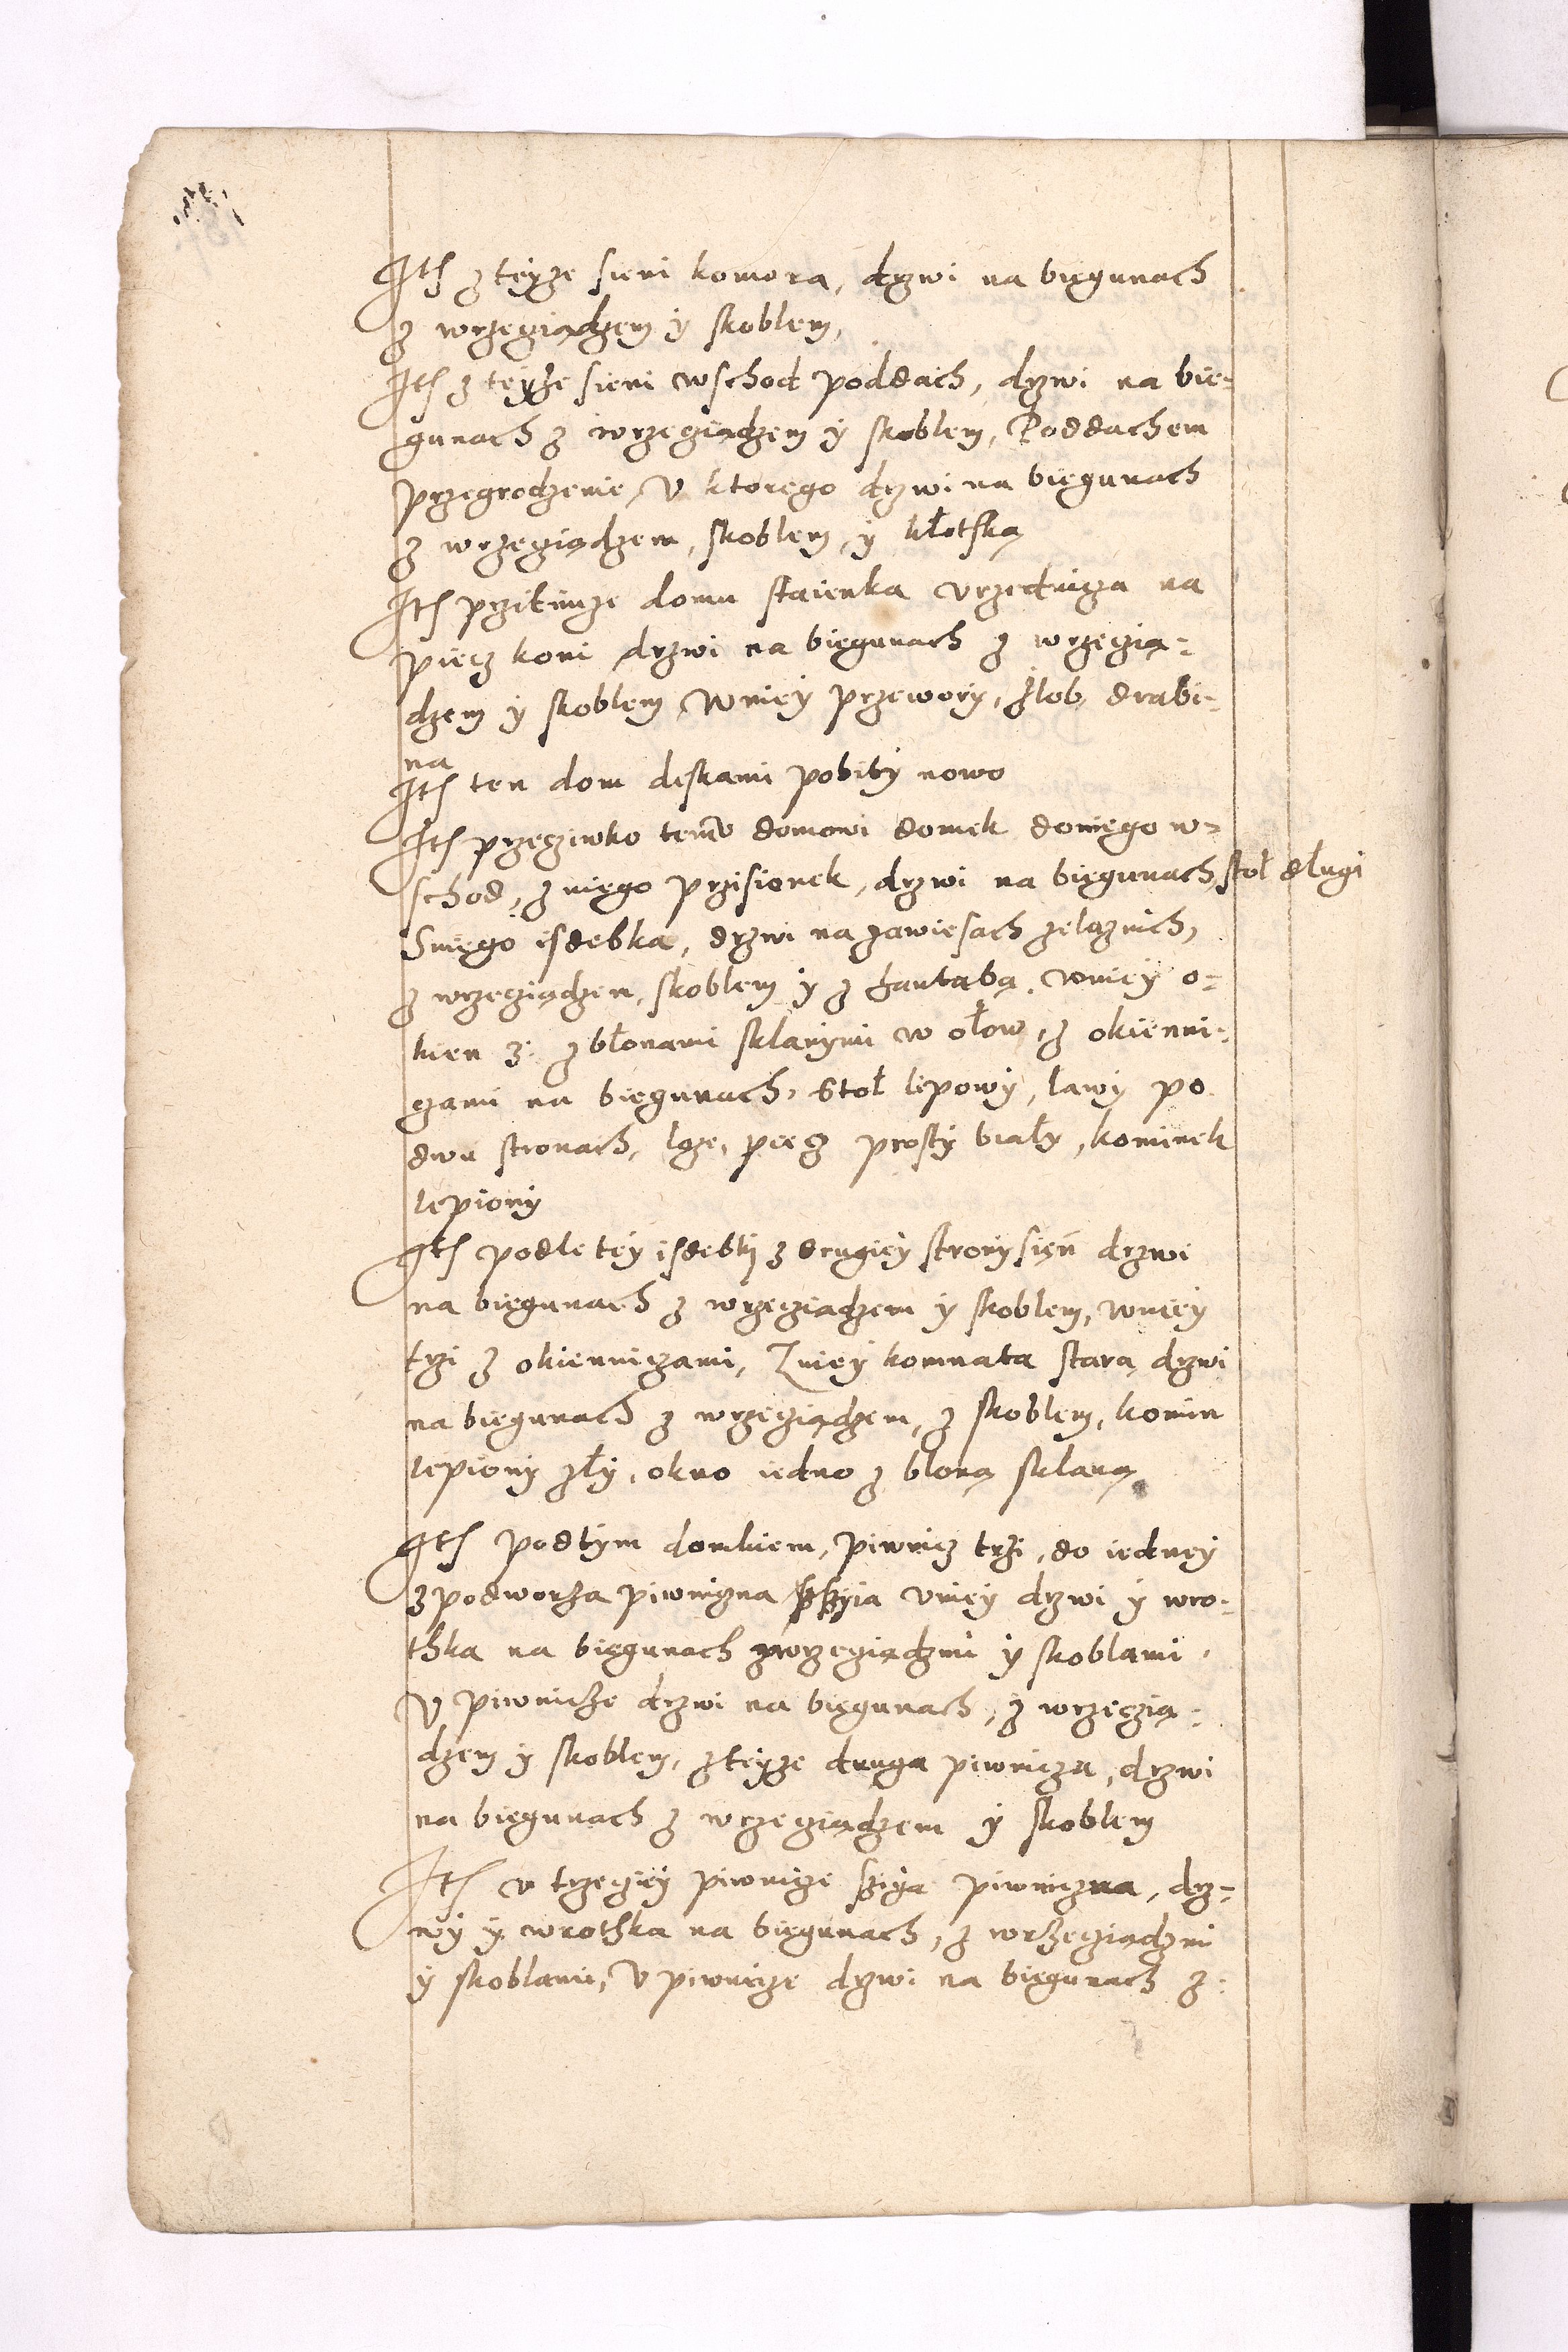 Itẽ z teyze sieni komora, drzwi na biegunach
z wrzeciądzem y skoblem,
Itẽ z teyże sieni wschod poddach, drzwi na bie-
gunach z wrzeciądzem y skoblem, Poddachem
przegrodzenie, v ktorego drzwi na biegunach
z wrzeciądzem, skoblem, y kłotką
Itẽ przitimze domu staienka vrzednicza na
piecz koni drzwi na biegunach z wrzeczią-
dzem y skoblem, Wniey przewory, żlob, drabi-
na
Itẽ ten dom deskami pobity nowo
Itẽ przecziwko temu domowi domek doniego w-
schod, z niego przisionek, drzwi na biegunach, stoł dlugi
Sniego isdebka, drzwi na zawiesach zelaznich,
z wrzecziądzem, skoblem y z hantabą, wniey o-
kien 3. z błonami sklanymi w ołow, z okienni-
czami na biegunach, Stoł lipowy, lawy po
dwu stronach, loże, piecz prosty biały, kominek
lepiony
Itẽ podle tey isdebki z drugiey strony sień drzwi
na biegunach z wrzecziądzem y skoblem, wniey
trzi z okienniczami, Zniey komnata stara, drzwi
na biegunach z wrzecziądzem, z skoblem, komin
lepiony zły, okno iedno z bloną sklaną
Itẽ podtym domkiem, piwnicz trzi, do iedney
z podworza piwniczna szyia vniey drzwi y wro-
thka na biegunach zwrzeciądzmi y skoblami,
V piwnicze drzwi na biegunach, z wrzeczią-
dzem y skoblem, z teyze druga piwnicza, drzwi
na biegunach z wrzecziądzem y skoblem
Itẽ v trzecziey piwnicze szyia piwniczna, drz-
wy y wrothka na biegunach, z wrzecziądzmi
y skoblami, V piwnicze drzwi na biegunach z